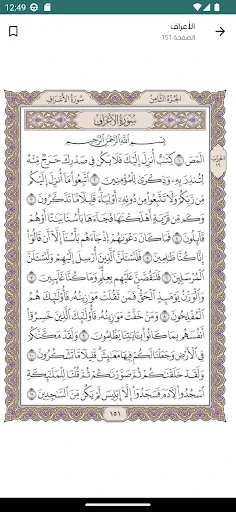 12:49
الأعراف
الصفحة 151
سُورَةُ الأَعۡرَافِ
الجُزۡءُ الثَّامِنُ
سُورَةُ الأَعۡرَافِ
بِسۡمِ ٱللَّهِ ٱلرَّحۡمَٰنِ ٱلرَّحِيمِ
الٓمٓصٓ ١ كِتَٰبٌ أُنزِلَ إِلَيۡكَ فَلَا يَكُن فِي صَدۡرِكَ حَرَجٞ مِّنۡهُ
لِتُنذِرَ بِهِۦ وَذِكۡرَىٰ لِلۡمُؤۡمِنِينَ ٢ ٱتَّبِعُواْ مَآ أُنزِلَ إِلَيۡكُم
مِّن رَّبِّكُمۡ وَلَا تَتَّبِعُواْ مِن دُونِهِۦٓ أَوۡلِيَآءَۗ قَلِيلٗا مَّا تَذَكَّرُونَ ٣
وَكَم مِّن قَرۡيَةٍ أَهۡلَكۡنَٰهَا فَجَآءَهَا بَأۡسُنَا بَيَٰتًا أَوۡ هُمۡ
قَآئِلُونَ ٤ فَمَا كَانَ دَعۡوَىٰهُمۡ إِذۡ جَآءَهُم بَأۡسُنَآ إِلَّآ أَن قَالُوٓاْ
إِنَّا كُنَّا ظَٰلِمِينَ ٥ فَلَنَسۡـَٔلَنَّ ٱلَّذِينَ أُرۡسِلَ إِلَيۡهِمۡ وَلَنَسۡـَٔلَنَّ
ٱلۡمُرۡسَلِينَ ٦ فَلَنَقُصَّنَّ عَلَيۡهِم بِعِلۡمٖۖ وَمَا كُنَّا غَآئِبِينَ ٧
وَٱلۡوَزۡنُ يَوۡمَئِذٍ ٱلۡحَقُّۚ فَمَن ثَقُلَتۡ مَوَٰزِينُهُۥ فَأُوْلَٰٓئِكَ هُمُ
ٱلۡمُفۡلِحُونَ ٨ وَمَنۡ خَفَّتۡ مَوَٰزِينُهُۥ فَأُوْلَٰٓئِكَ ٱلَّذِينَ خَسِرُوٓاْ
أَنفُسَهُم بِمَا كَانُواْ بِـَٔايَٰتِنَا يَظۡلِمُونَ ٩ وَلَقَدۡ مَكَّنَّٰكُمۡ
فِي ٱلۡأَرۡضِ وَجَعَلۡنَا لَكُمۡ فِيهَا مَعَٰيِشَۗ قَلِيلٗا مَّا تَشۡكُرُونَ ١٠
وَلَقَدۡ خَلَقۡنَٰكُمۡ ثُمَّ صَوَّرۡنَٰكُمۡ ثُمَّ قُلۡنَا لِلۡمَلَٰٓئِكَةِ
ٱسۡجُدُواْ لِأٓدَمَ فَسَجَدُوٓاْ إِلَّآ إِبۡلِيسَ لَمۡ يَكُن مِّنَ ٱلسَّٰجِدِينَ ١١
١٥١